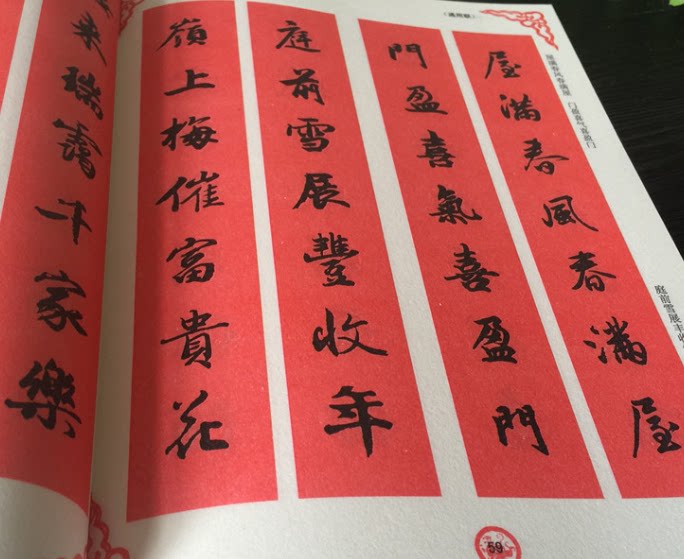 （通用联）
屋满春风春满屋 门盈喜气喜盈门
屋滿春風春滿屋
門盈喜氣喜盈門
庭前雪展丰收
庭前雪展豐收年
嶺上梅催富貴花
來瑞靄千家樂
59